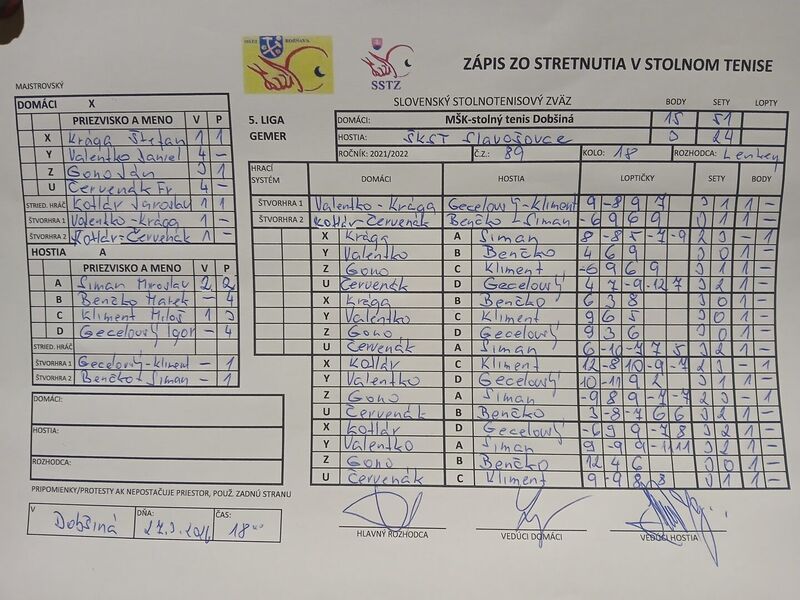 SSTZ ROŽŇAVA
SSTZ
ZÁPIS ZO STRETNUTIA V STOLNOM TENISE
MAJSTROVSKÝ
DOMÁCI X
PRIEZVISKO A MENO V P
X Krága Štefan 1 1
Y Valentko Daniel 4 –
Z Gono Ján 3 1
U Červenák Fr 4 –
STRIED. HRÁČ Kotlár Jaroslav 1 1
ŠTVORHRA 1 Valentko – Krága 1 –
ŠTVORHRA 2 Kotlár – Červenák 1 –
HOSTIA A
PRIEZVISKO A MENO V P
A Siman Miroslav 2 2
B Benčko Marek – 4
C Kliment Miloš 1 3
D Gecelový Igor – 4
STRIED. HRÁČ
ŠTVORHRA 1 Gecelový – Kliment – 1
ŠTVORHRA 2 Benčko – Siman – 1
DOMÁCI:
HOSTIA:
ROZHODCA:
PRIPOMIENKY/PROTESTY AK NEPOSTAČUJE PRIESTOR, POUŽ. ZADNÚ STRANU
V Dobšiná DŇA: ČAS: 18⁰⁰
SLOVENSKÝ STOLNOTENISOVÝ ZVÄZ BODY SETY LOPTY
5. LIGA GEMER
DOMÁCI: MŠK-stolný tenis Dobšiná 15 51
HOSTIA: ŠKST Slavošovce 3 24
ROČNÍK: 2021/2022 Č.Z.: 89 KOLO: 18 ROZHODCA: Lenkey
HRACÍ SYSTÉM DOMÁCI HOSTIA LOPTIČKY SETY BODY
ŠTVORHRA 1 Valentko – Krága Gecelový – Kliment 9 -8 9 7 3 1 1 –
ŠTVORHRA 2 Kotlár – Červenák Benčko – Siman -6 9 6 9 3 1 1 –
X Krága A Siman 8 -8 5 -7 -9 2 3 – 1
Y Valentko B Benčko 4 6 9 3 0 1 –
Z Gono C Kliment -6 9 6 9 3 1 1 –
U Červenák D Gecelový 4 7 -9 -12 7 3 2 1 –
X Krága B Benčko 6 3 8 3 0 1 –
Y Valentko C Kliment 9 6 5 3 0 1 –
Z Gono D Gecelový 9 3 6 3 0 1 –
U Červenák A Siman 6 -10 -7 7 5 3 2 1 –
X Kotlár C Kliment 12 -8 10 -9 -7 2 3 – 1
Y Valentko D Gecelový 10 -11 9 2 3 1 1 –
Z Gono A Siman -9 8 9 -7 -7 2 3 – 1
U Červenák B Benčko 3 -8 -7 6 6 3 2 1 –
X Kotlár D Gecelový -6 9 9 -7 8 3 2 1 –
Y Valentko A Siman 9 -9 9 -11 11 3 2 1 –
Z Gono B Benčko 12 4 6 3 0 1 –
U Červenák C Kliment 9 -9 8 8 3 1 1 –
HLAVNÝ ROZHODCA VEDÚCI DOMÁCI VEDÚCI HOSTIA